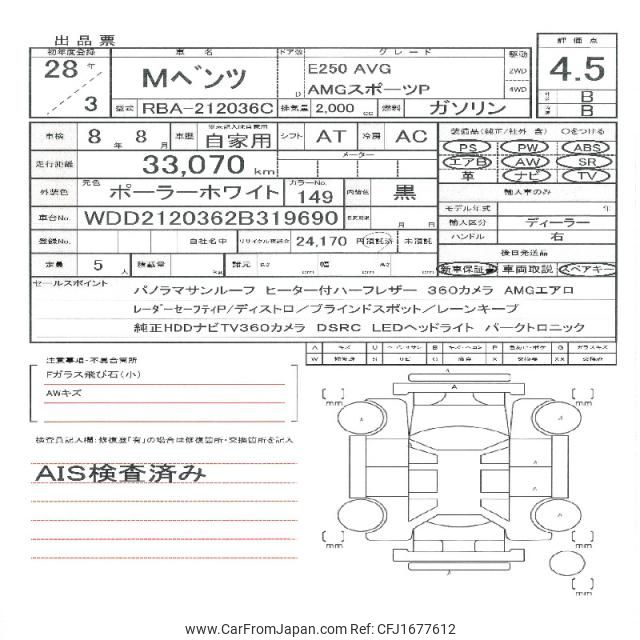 出品票
初年度登録 車名 ドア数 グレード 駆動 評価点
28年/3 Mベンツ D E250 AVG AMGスポーツP 2WD 4WD 4.5
型式 RBA-212036C 排気量 2,000 cc 燃料 ガソリン B B
車検 8年 8月 車歴 自家用 シフト AT 冷房 AC 装備品(純正/社外 含) ○をつける
走行距離 33,070 km メーター PS PW ABS
エアB AW SR
革 ナビ TV
外装色 元色 ポーラーホワイト カラーNo. 149 内装色 黒 輸入車のみ
モデル年式 年
車台No. WDD2120362B319690 月 日 輸入区分 ディーラー
登録No. 自社名中 リサイクル預託金 24,170 円 預託済 未預託 ハンドル 右
後日発送品
定員 5人 積載量 kg 諸元 長さ cm 幅 cm 高さ cm 新車保証書 車両取説 スペアキー
セールスポイント
パノラマサンルーフ ヒーター付ハーフレザー 360カメラ AMGエアロ
レーダーセーフティP/ディストロ/ブラインドスポット/レーンキープ
純正HDDナビTV360カメラ DSRC LEDヘッドライト パークトロニック
A キズ U B P G ガラスキズ
W S サビ C X XX
注意事項・不具合箇所
Fガラス飛び石(小)
AWキズ
検査員記入欄:修復歴「有」の場合は修復箇所・交換箇所を記入
AIS検査済み
A
mm
mm
A
A
A
A
mm
mm
mm
www.CarFromJapan.com Ref: CFJ1677612